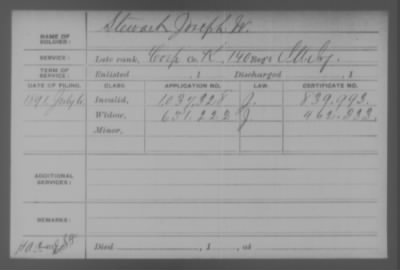 NAME OF SOLDIER: Stewart Joseph W.
SERVICE: Late rank, Corp Co. K, 140 Reg't Ills Inf
TERM OF SERVICE: Enlisted , 1 Discharged , 1
DATE OF FILING. CLASS. APPLICATION NO. LAW. CERTIFICATE NO.
1891 July 6 Invalid, 1037328 J. 839.993.
Widow, 651.222 J 962.333.
Minor,
ADDITIONAL SERVICES:
REMARKS:
Died , 1 , at